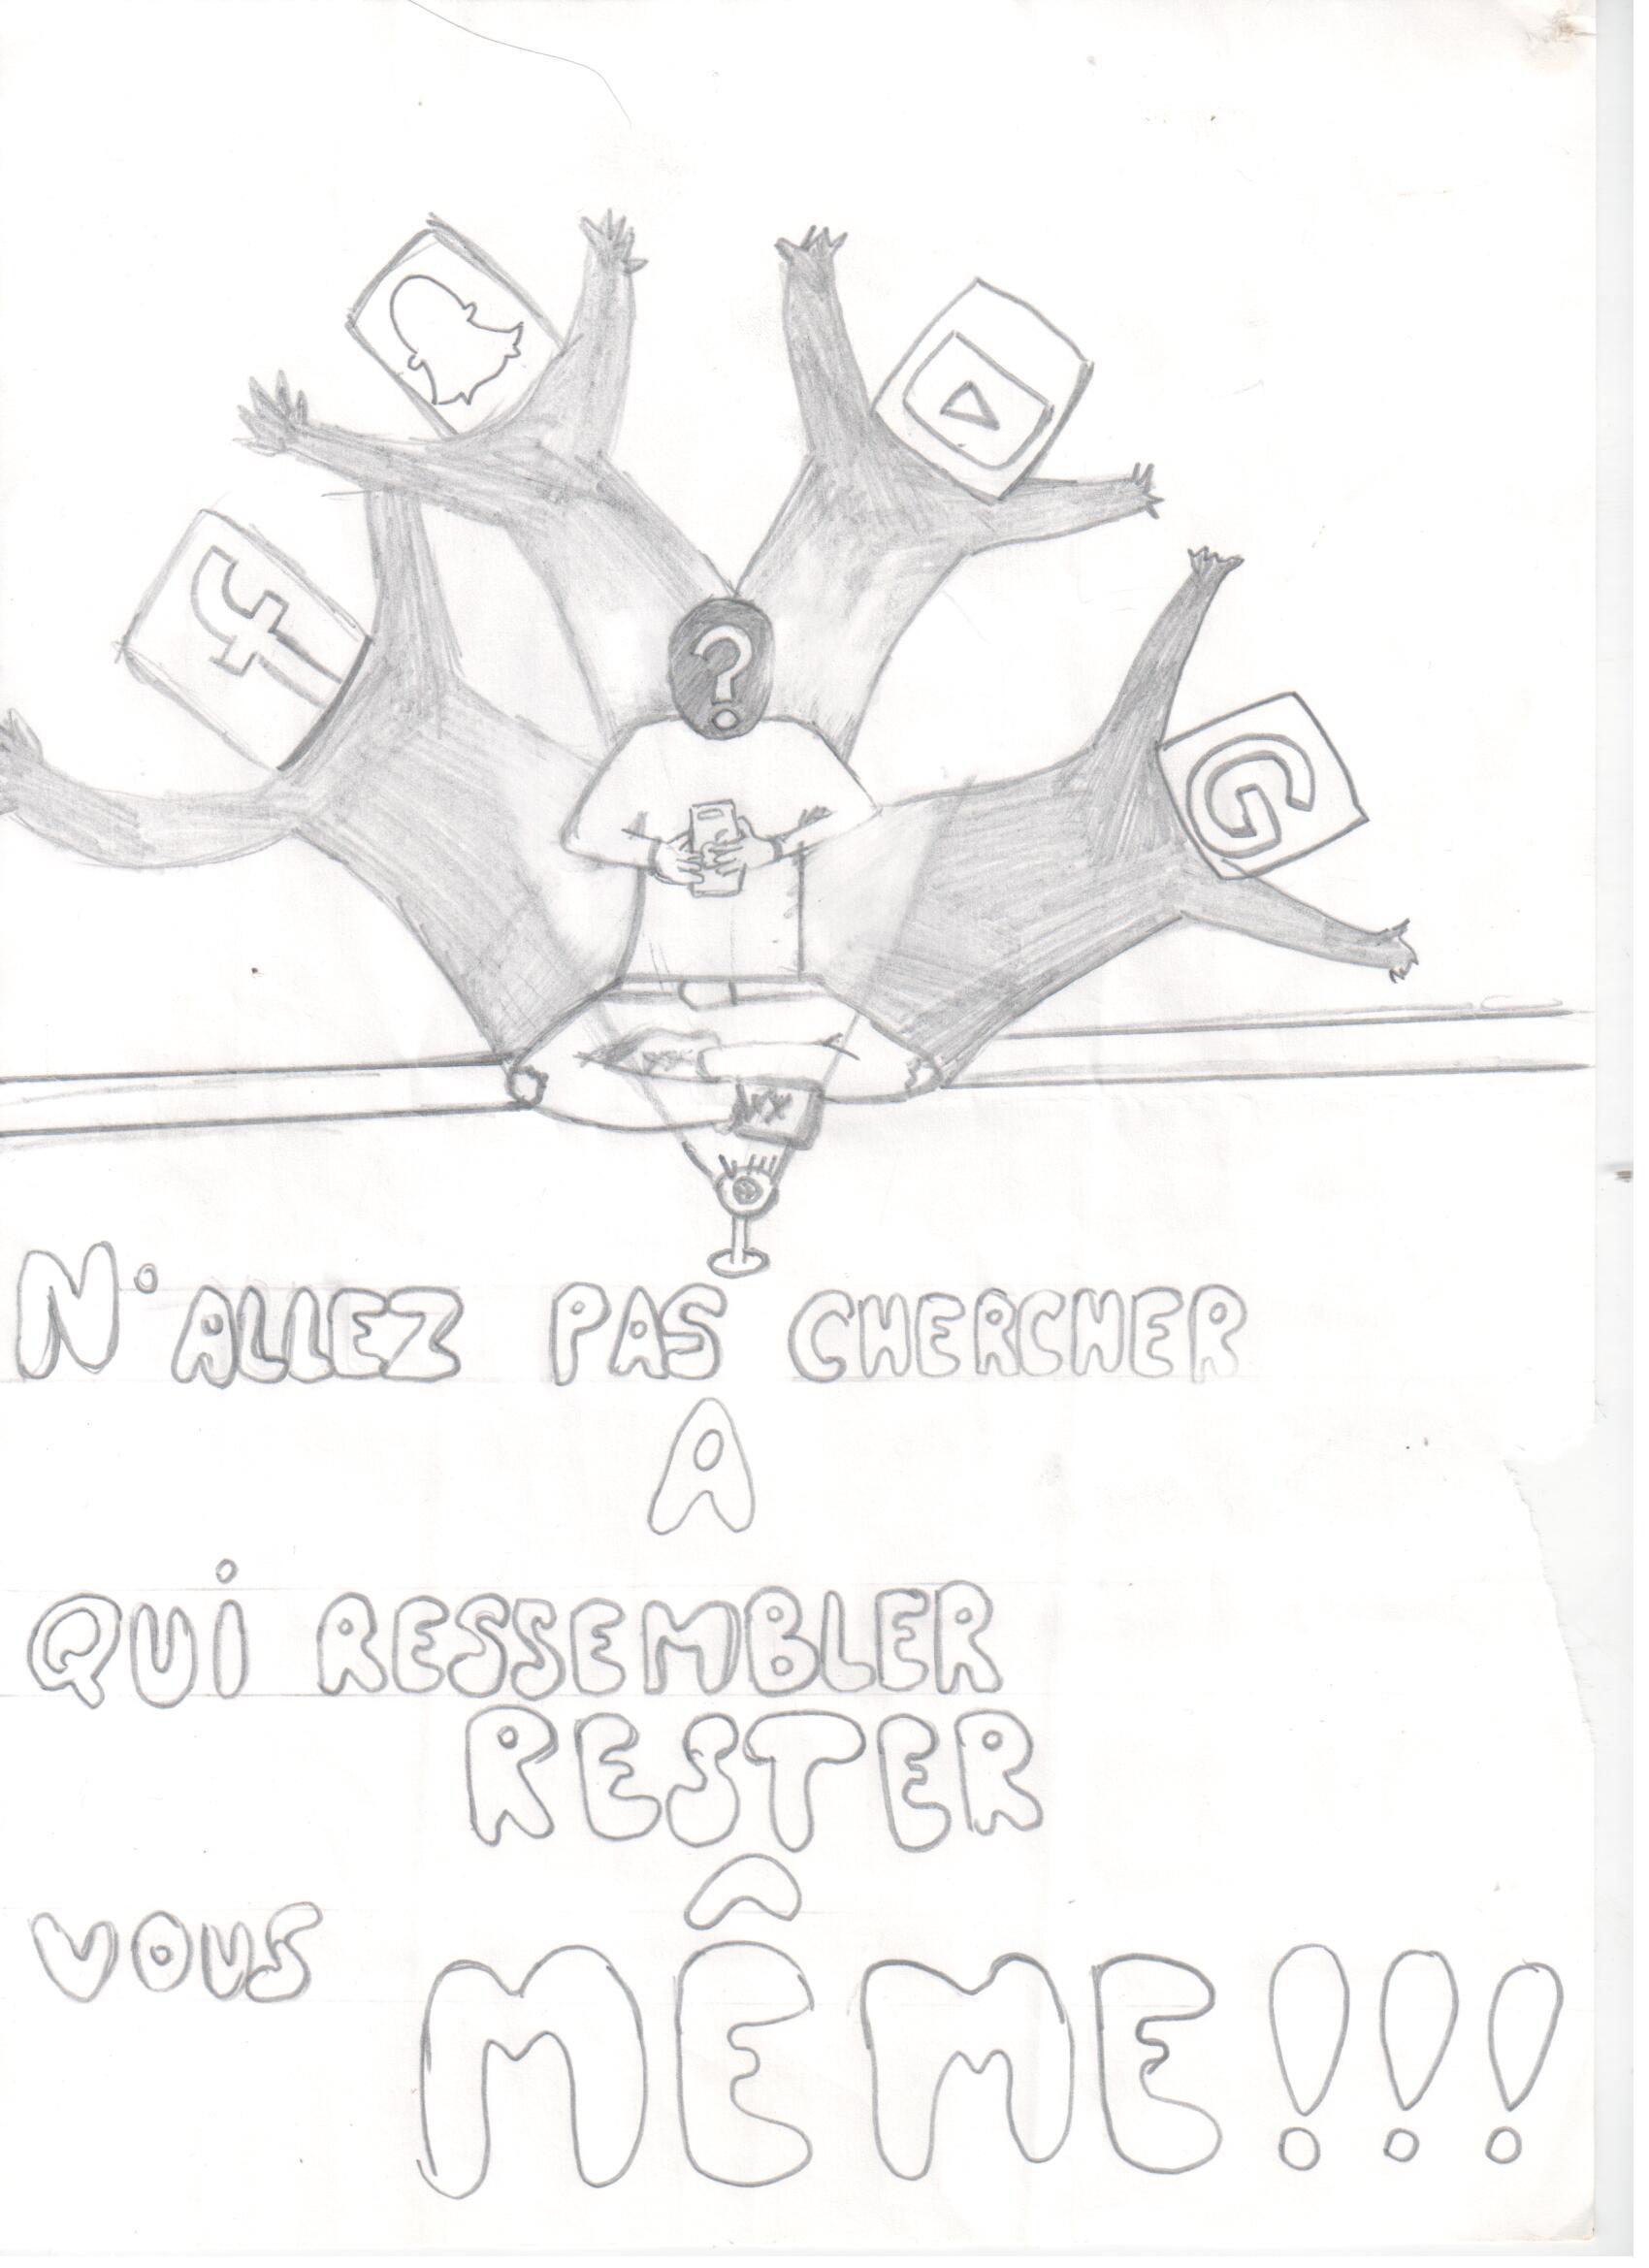 f
?
G
N'ALLEZ PAS CHERCHER
A
QUI RESSEMBLER
RESTER
VOUS MÊME!!!